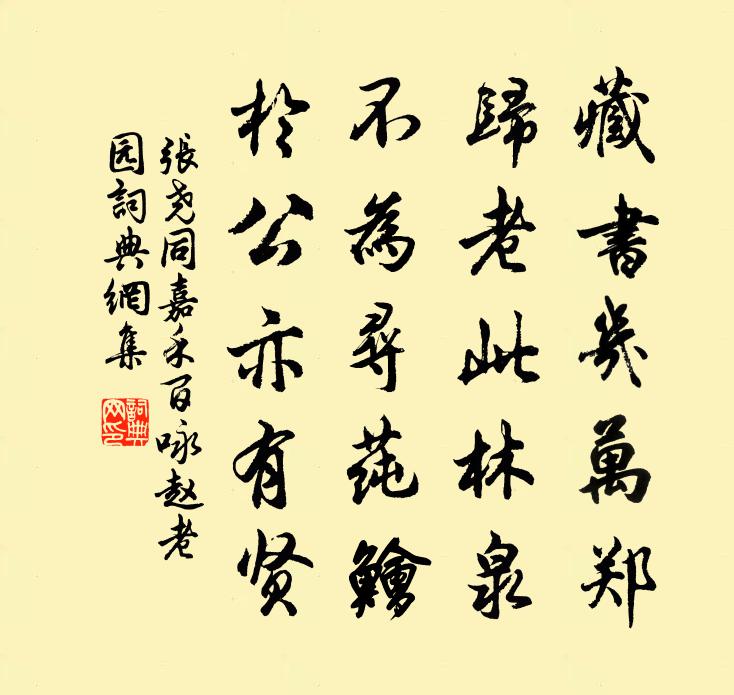 藏書幾萬郑
歸老此林泉
不為尋蒓鱠
於公亦有贤
張尧同嘉禾百咏赵老
园詞典網集
詞典网印